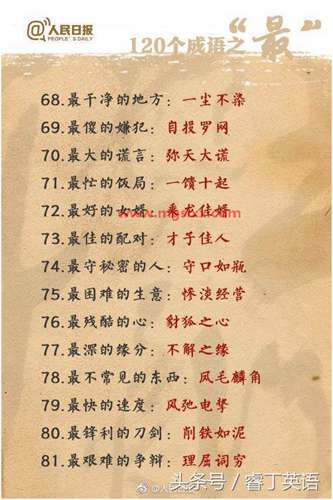 @人民日报
PEOPLE'S DAILY
120个成语之“最”
68.最干净的地方：一尘不染
69.最傻的嫌犯：自投罗网
70.最大的谎言：弥天大谎
71.最忙的饭局：一馈十起
72.最好的女婿：乘龙佳婿
73.最佳的配对：才子佳人
74.最守秘密的人：守口如瓶
75.最困难的生意：惨淡经营
76.最残酷的心：豺狐之心
77.最深的缘分：不解之缘
78.最不常见的东西：凤毛麟角
79.最快的速度：风弛电掣
80.最锋利的刀剑：削铁如泥
81.最艰难的争辩：理屈词穷
@人民日报
头条号 / 睿丁英语